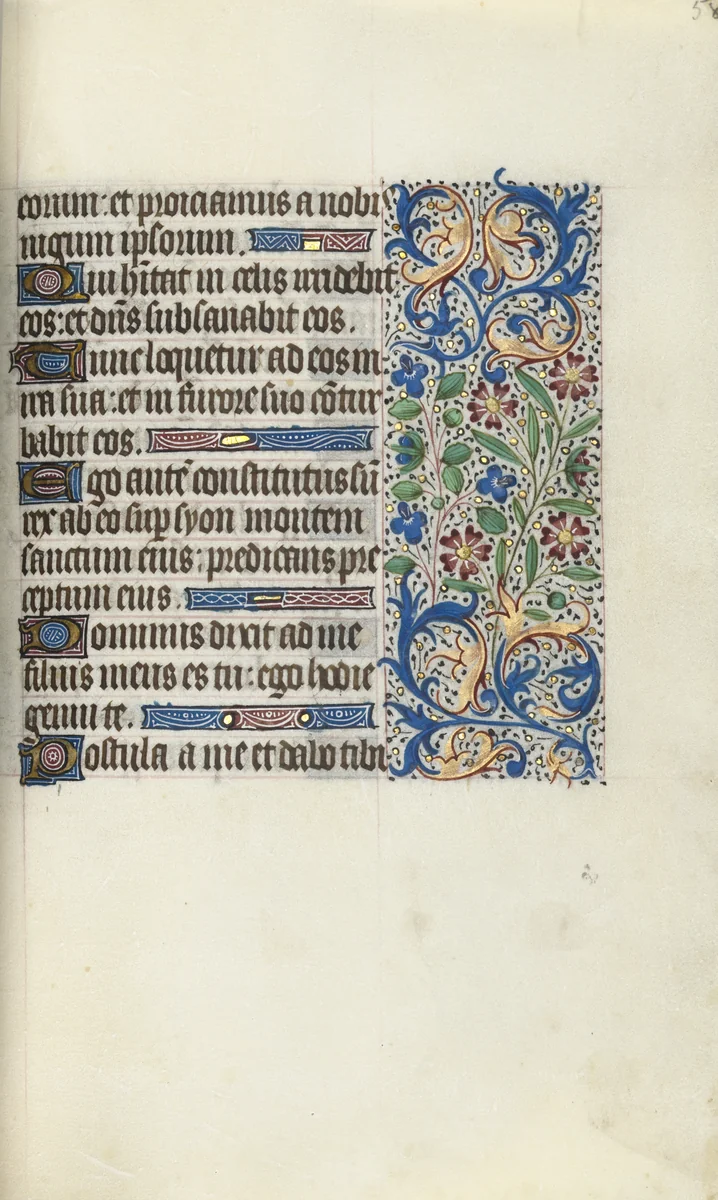 58
eorum: et proiciamus a nobis
iugum ipsorum.
Qui hītat in celis irridebit
eos: et dn̄s subsanabit eos.
Tunc loquetur ad eos in
ira sua: et in furore suo cōtur
babit eos.
Ego autē constitutus sū
rex ab eo sup syon montem
sanctum eius: predicans pre
ceptum eius.
Dominus dixit ad me
filius meus es tu: ego hodie
genui te.
Postula a me et dabo tibi